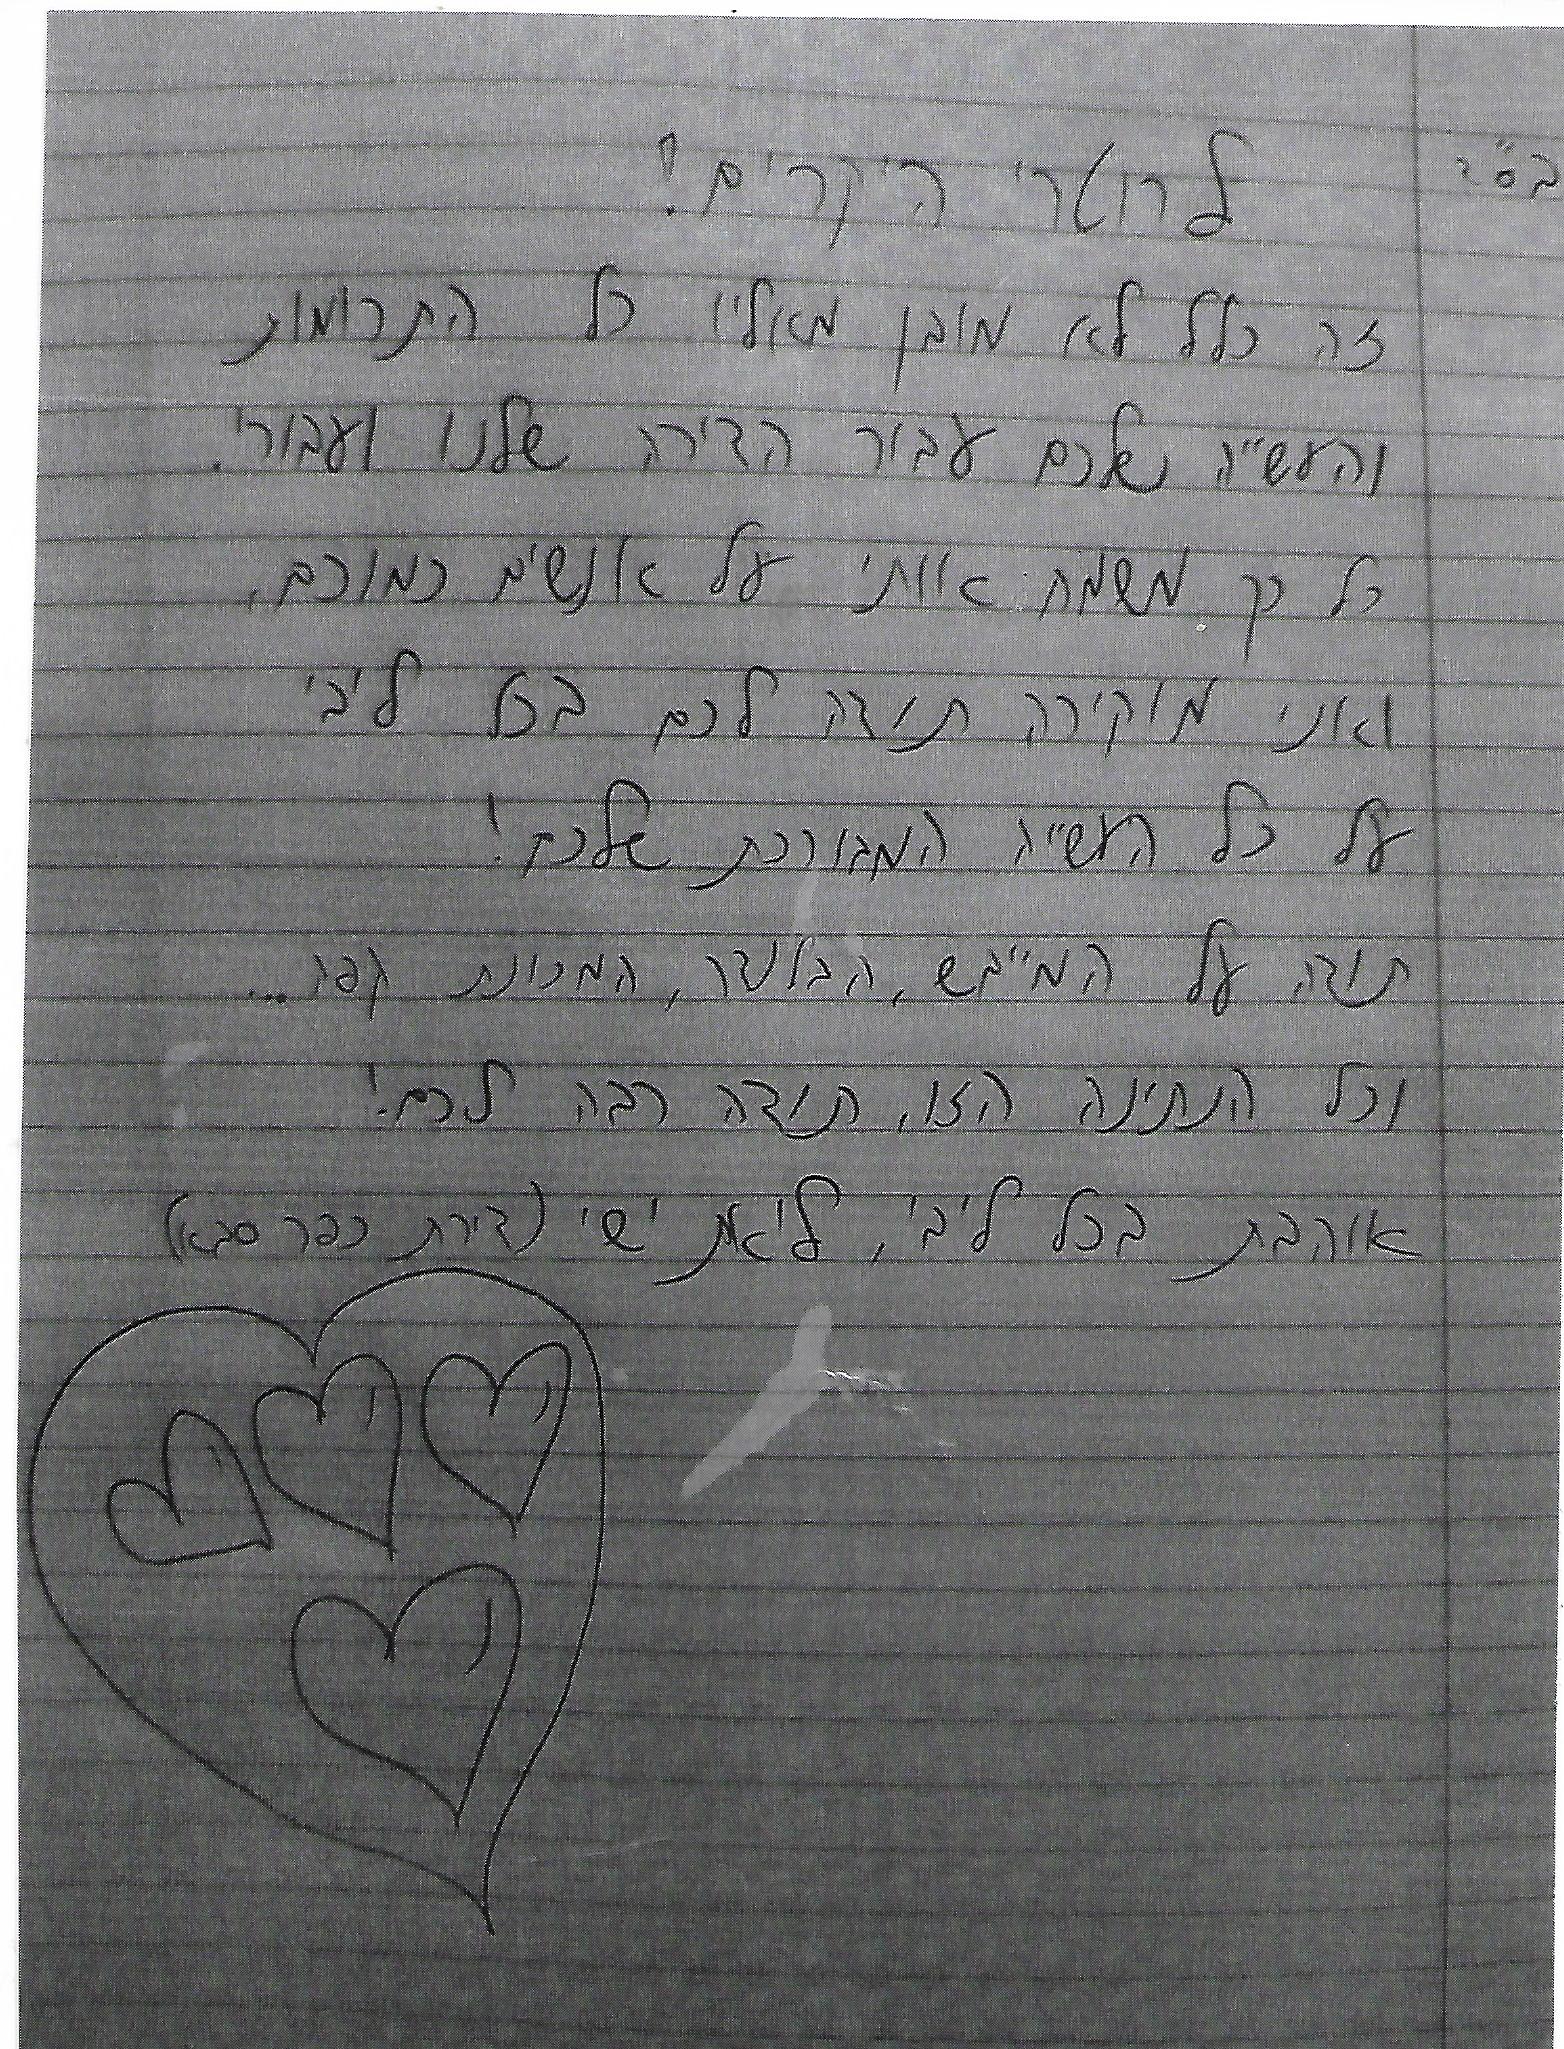 בס"ד
לרוטרי היקרים!
זה כלל לא מובן מאליו כל התרומות
והעשייה שלכם עבור הדירה שלנו ועבורי.
כל כך משמח אותי על אנשים כמוכם,
ואני מוקירה תודה לכם בכל ליבי
על כל העשייה המבורכת שלכם!
תודה על המייבש, הבלנדר, המכונת קפה...
וכל הנתינה הזו, תודה רבה לכם!
אוהבת בכל ליבי, ליאת ישי (דירת כפר סבא)